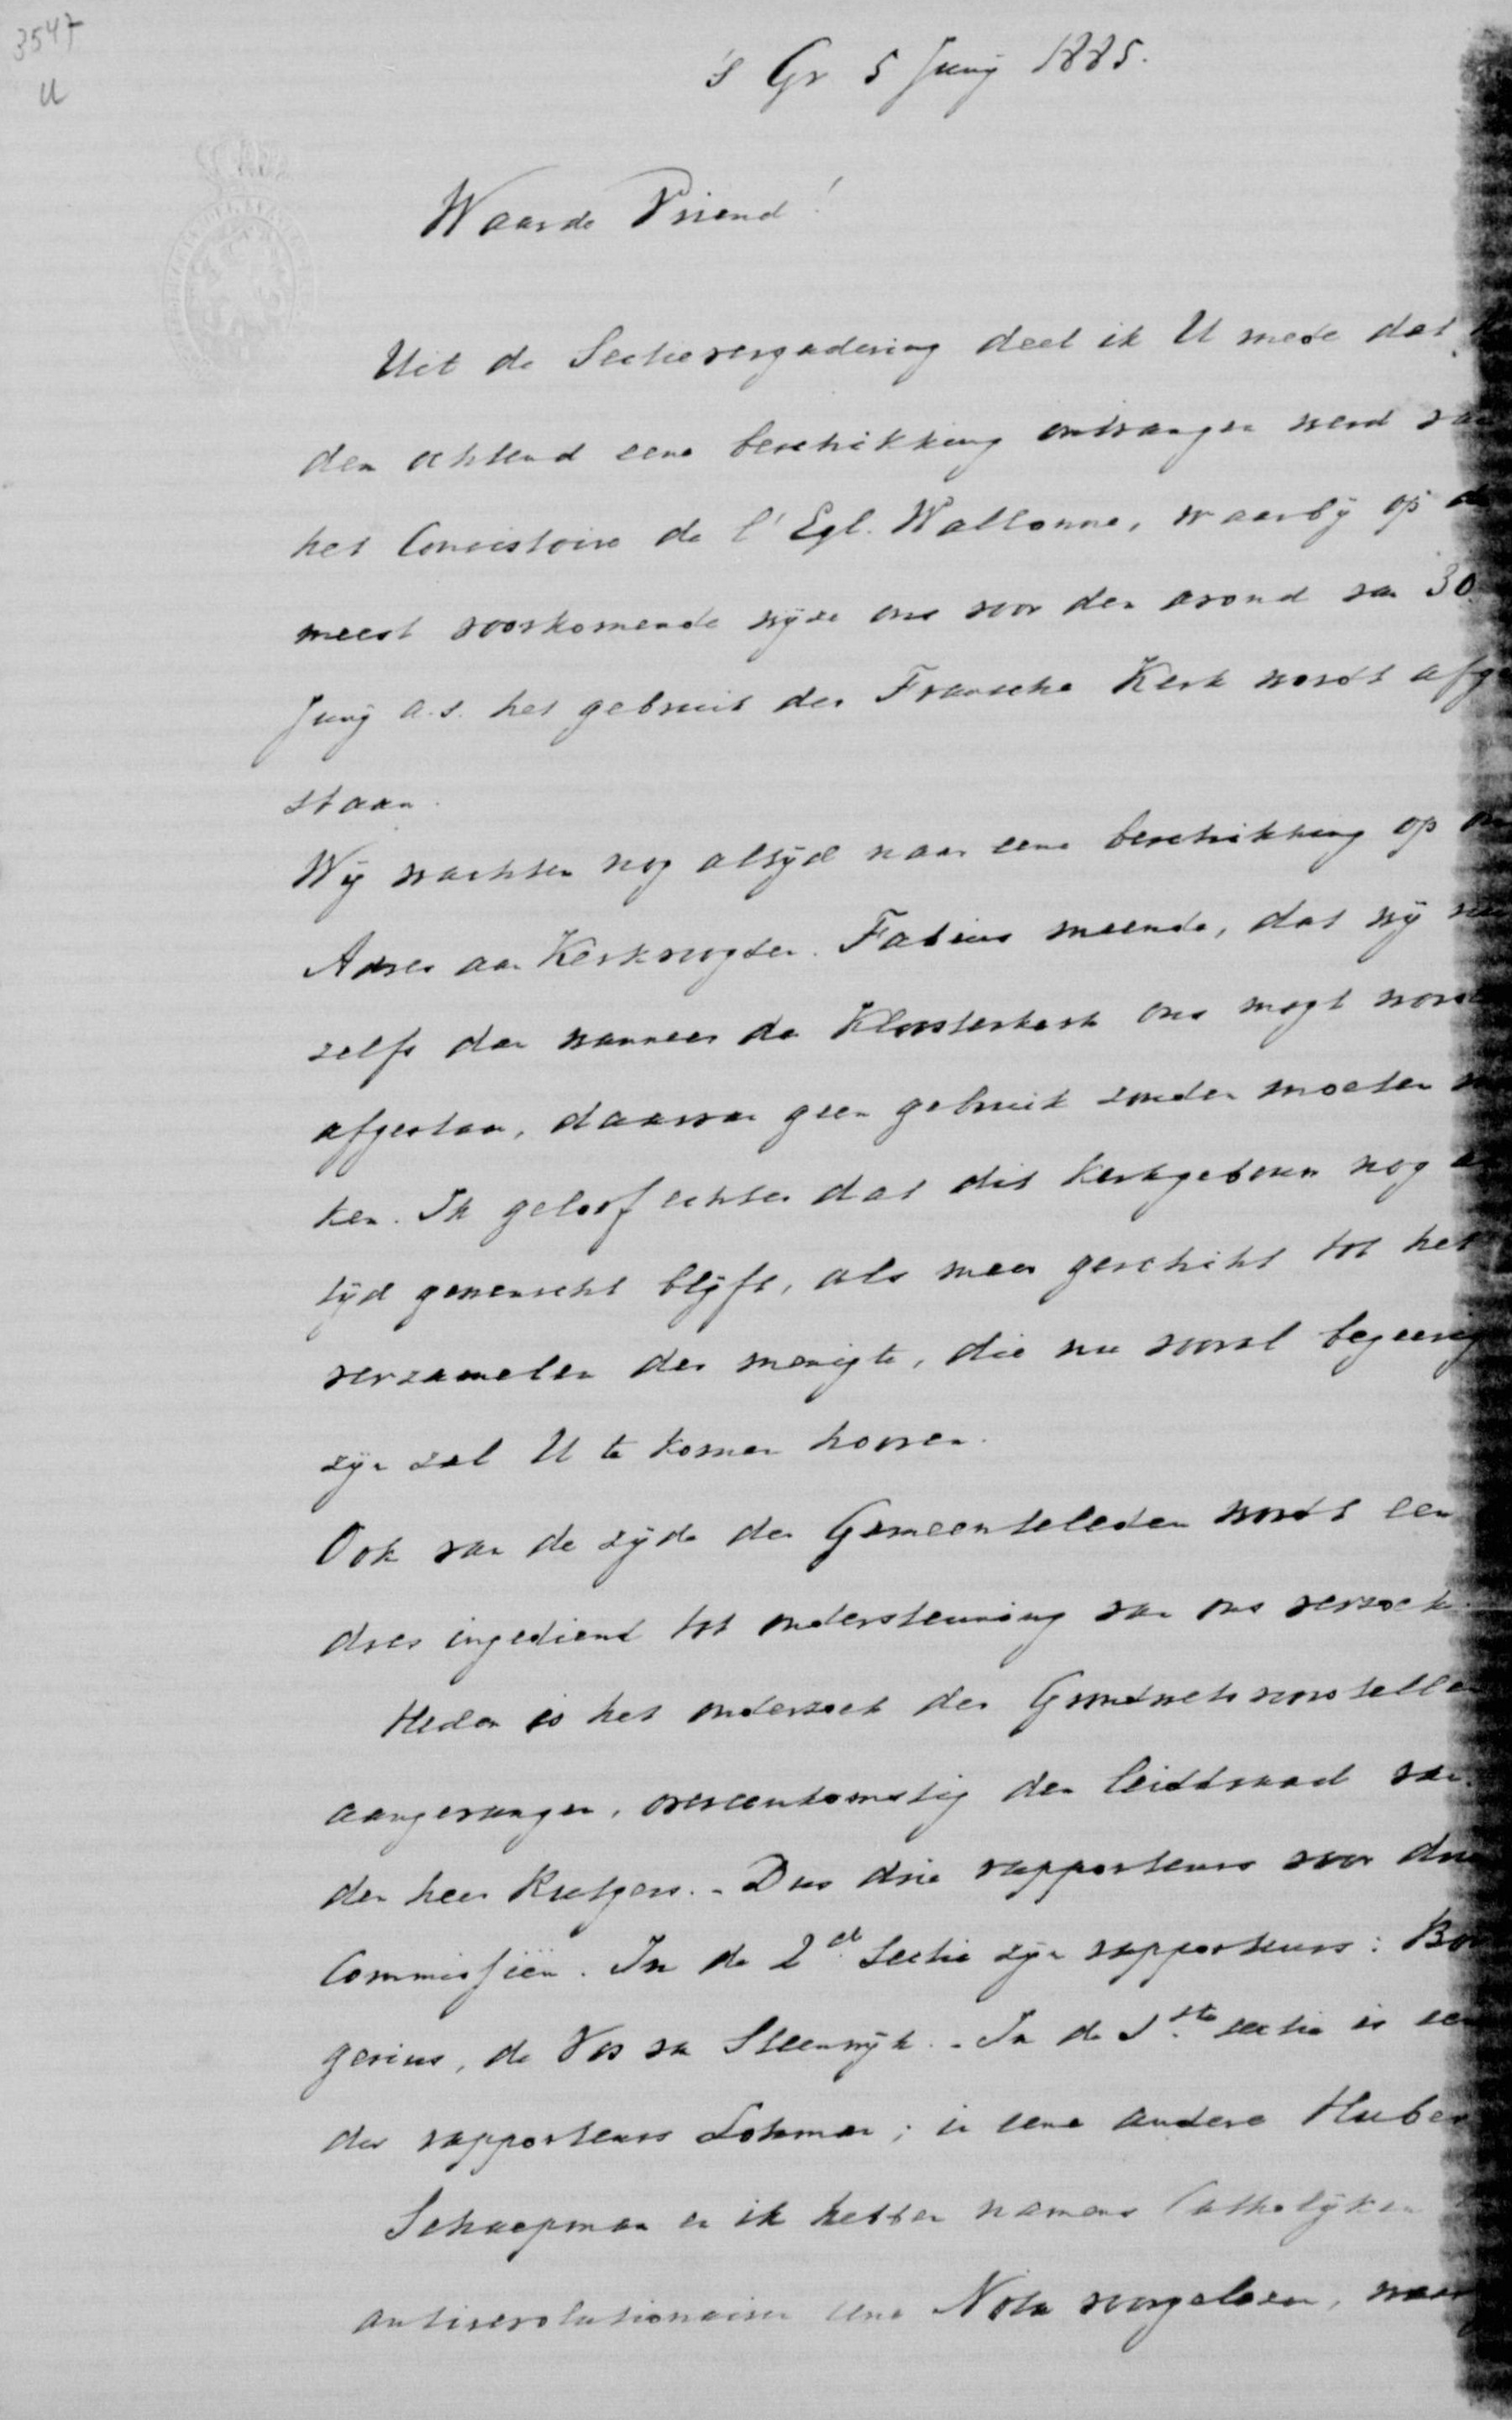 3547
U
's Gr 5 Junij 1885.
Waarde Vriend!
Uit de Sectievergadering deel ik U mede dat
den ochtend eene beschikking ontvangen werd van
het Consistoire de l'Egl. Wallonne, waarbij op de
meest voorkomende wijze ons voor den avond van 30
Junij a.s. het gebruik der Fransche Kerk wordt afge
staan.
Wij wachten nog altijd naar eene beschikking op
Adres aan Kerkvoogden. Fabius meende, dat wij
zelfs dan wanneer de Kloosterkerk ons mogt word
afgestaan, daarvan geen gebruik zouden moeten
ken. Ik geloof echter dat dit kerkgebouw nog
tijd gewenscht blijft, als meer geschikt tot het
verzamelen der menigte, die nu vooral begeerig
zijn zal U te komen hooren.
Ook van de zijde der Gemeenteleden wordt een
dres ingediend tot ondersteuning van ons verzoek.
Heden is het onderzoek der Grondwetsvoorstellen
aangevangen, overeenkomstig den leiddraad van
den heer Rutgers. - Dus drie rapporteurs voor drie
Commissiën. In de 2de Sectie zijn rapporteurs: Bor
gesius, de Vos van Steenwijk. - In de 1ste sectie is een
der rapporteurs Lohman; in eene andere Huber
Schaepman en ik hebben namens Catholijken
antirevolutionairen eene Nota voorgelezen, waar